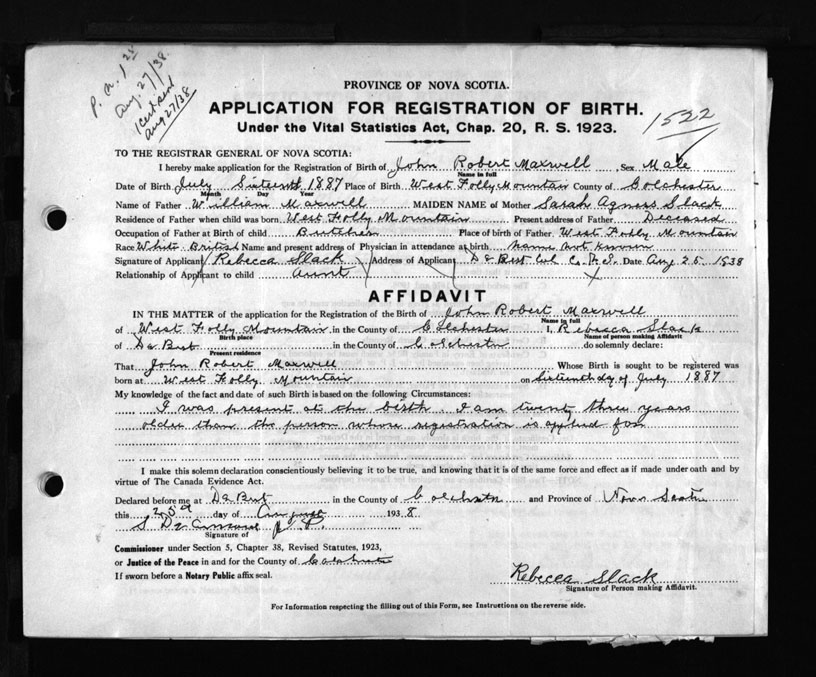 P. N. 1 25
Aug. 27/38.
1 Cert sent
Aug 27/38
1522
PROVINCE OF NOVA SCOTIA.
APPLICATION FOR REGISTRATION OF BIRTH.
Under the Vital Statistics Act, Chap. 20, R. S. 1923.
TO THE REGISTRAR GENERAL OF NOVA SCOTIA:
I hereby make application for the Registration of Birth of John Robert Maxwell Sex Male
Name in full
Date of Birth July Sixteenth 1887 Place of Birth West Folly Mountain County of Colchester
Month Day Year
Name of Father William Maxwell MAIDEN NAME of Mother Sarah Agness Slack
Residence of Father when child was born West Folly Mountain Present address of Father Deceased
Occupation of Father at Birth of child Butcher Place of birth of Father West Folly Mountain
Race White British Name and present address of Physician in attendance at birth name not known
Signature of Applicant Rebecca Slack Address of Applicant De Bert Col Co. N.S. Date Aug 25 1938
Relationship of Applicant to child aunt X
AFFIDAVIT
IN THE MATTER of the application for the Registration of the Birth of John Robert Maxwell
Name in full
of West Folly Mountain in the County of Colchester I, Rebecca Slack
Birth place Name of person making Affidavit
of De Bert in the County of Colchester do solemnly declare:
Present residence
That John Robert Maxwell Whose Birth is sought to be registered was
born at West Folly Mountain on Sixteenth dy of July 1887
My knowledge of the fact and date of such Birth is based on the following Circumstances:
I was present at the birth I am twenty three years
older than the person whose registration is applied for
I make this solemn declaration conscientiously believing it to be true, and knowing that it is of the same force and effect as if made under oath and by
virtue of The Canada Evidence Act.
Declared before me at De Bert in the County of Colchester and Province of Nova Scotia
this 25th day of August 1938
S J.P.
Signature of
Commissioner under Section 5, Chapter 38, Revised Statutes, 1923,
or Justice of the Peace in and for the County of Colchester
If sworn before a Notary Public affix seal.
Rebecca Slack
Signature of Person making Affidavit.
For Information respecting the filling out of this Form, see Instructions on the reverse side.